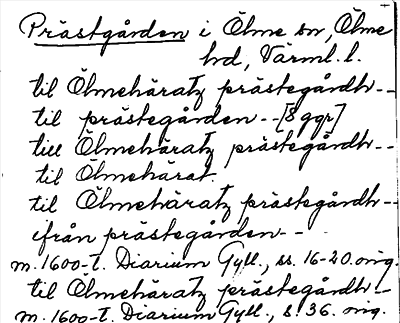 Prästgården i Ölme sn, Ölme
hd, Värml. l.
til Ölmehäratz prästegårdh--
til prästegården--[8 ggr]
till Ölmehäratz prästegårdh--
til Ölmehärat.
til Ölmehäratz prästegårdh--
ifrån prästegården--
m. 1600-t. Diarium Gyll., ss. 16-20. orig.
til Ölmehäratz prästegårdh--
m. 1600-t. Diarium Gyll., s. 36. orig.